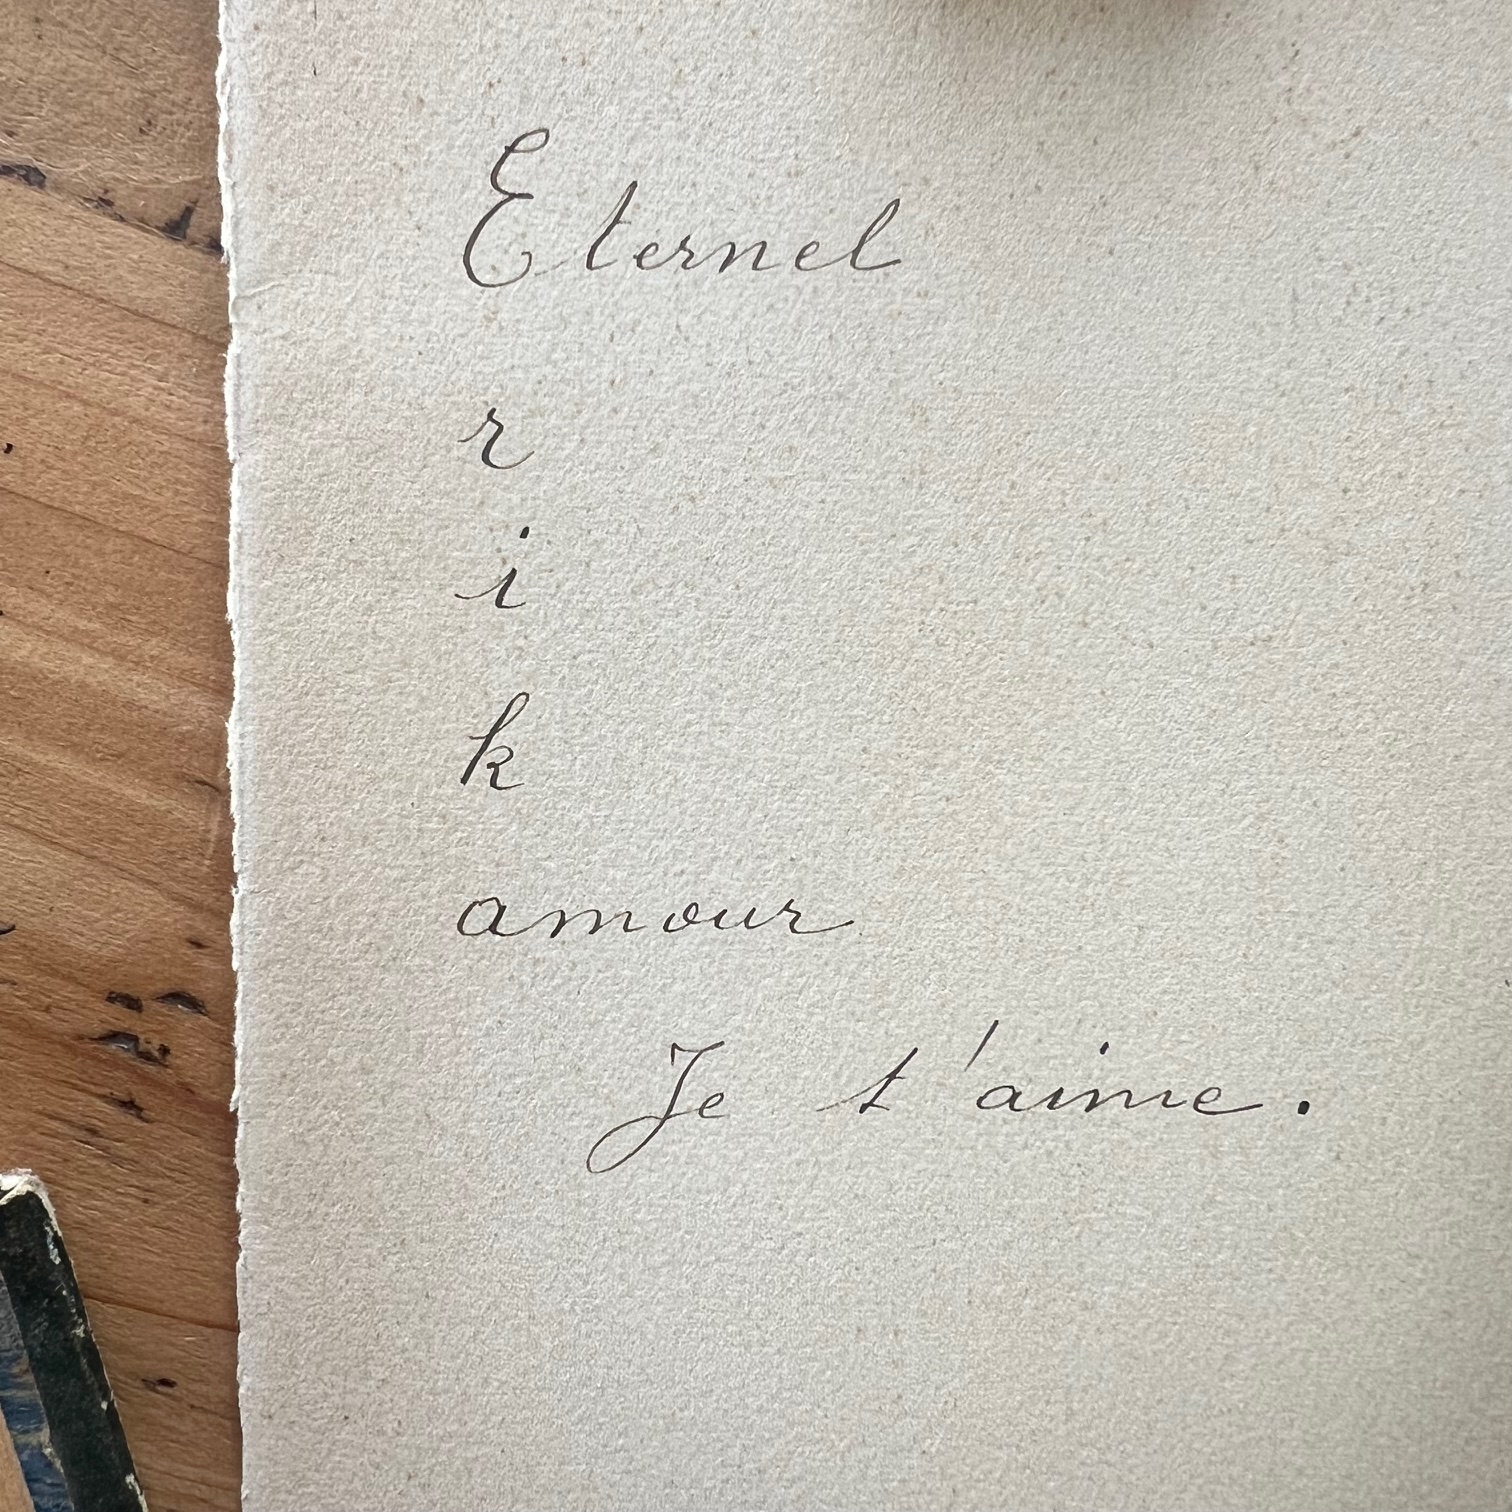 Eternel
r
i
k
amour
Je t'aime.